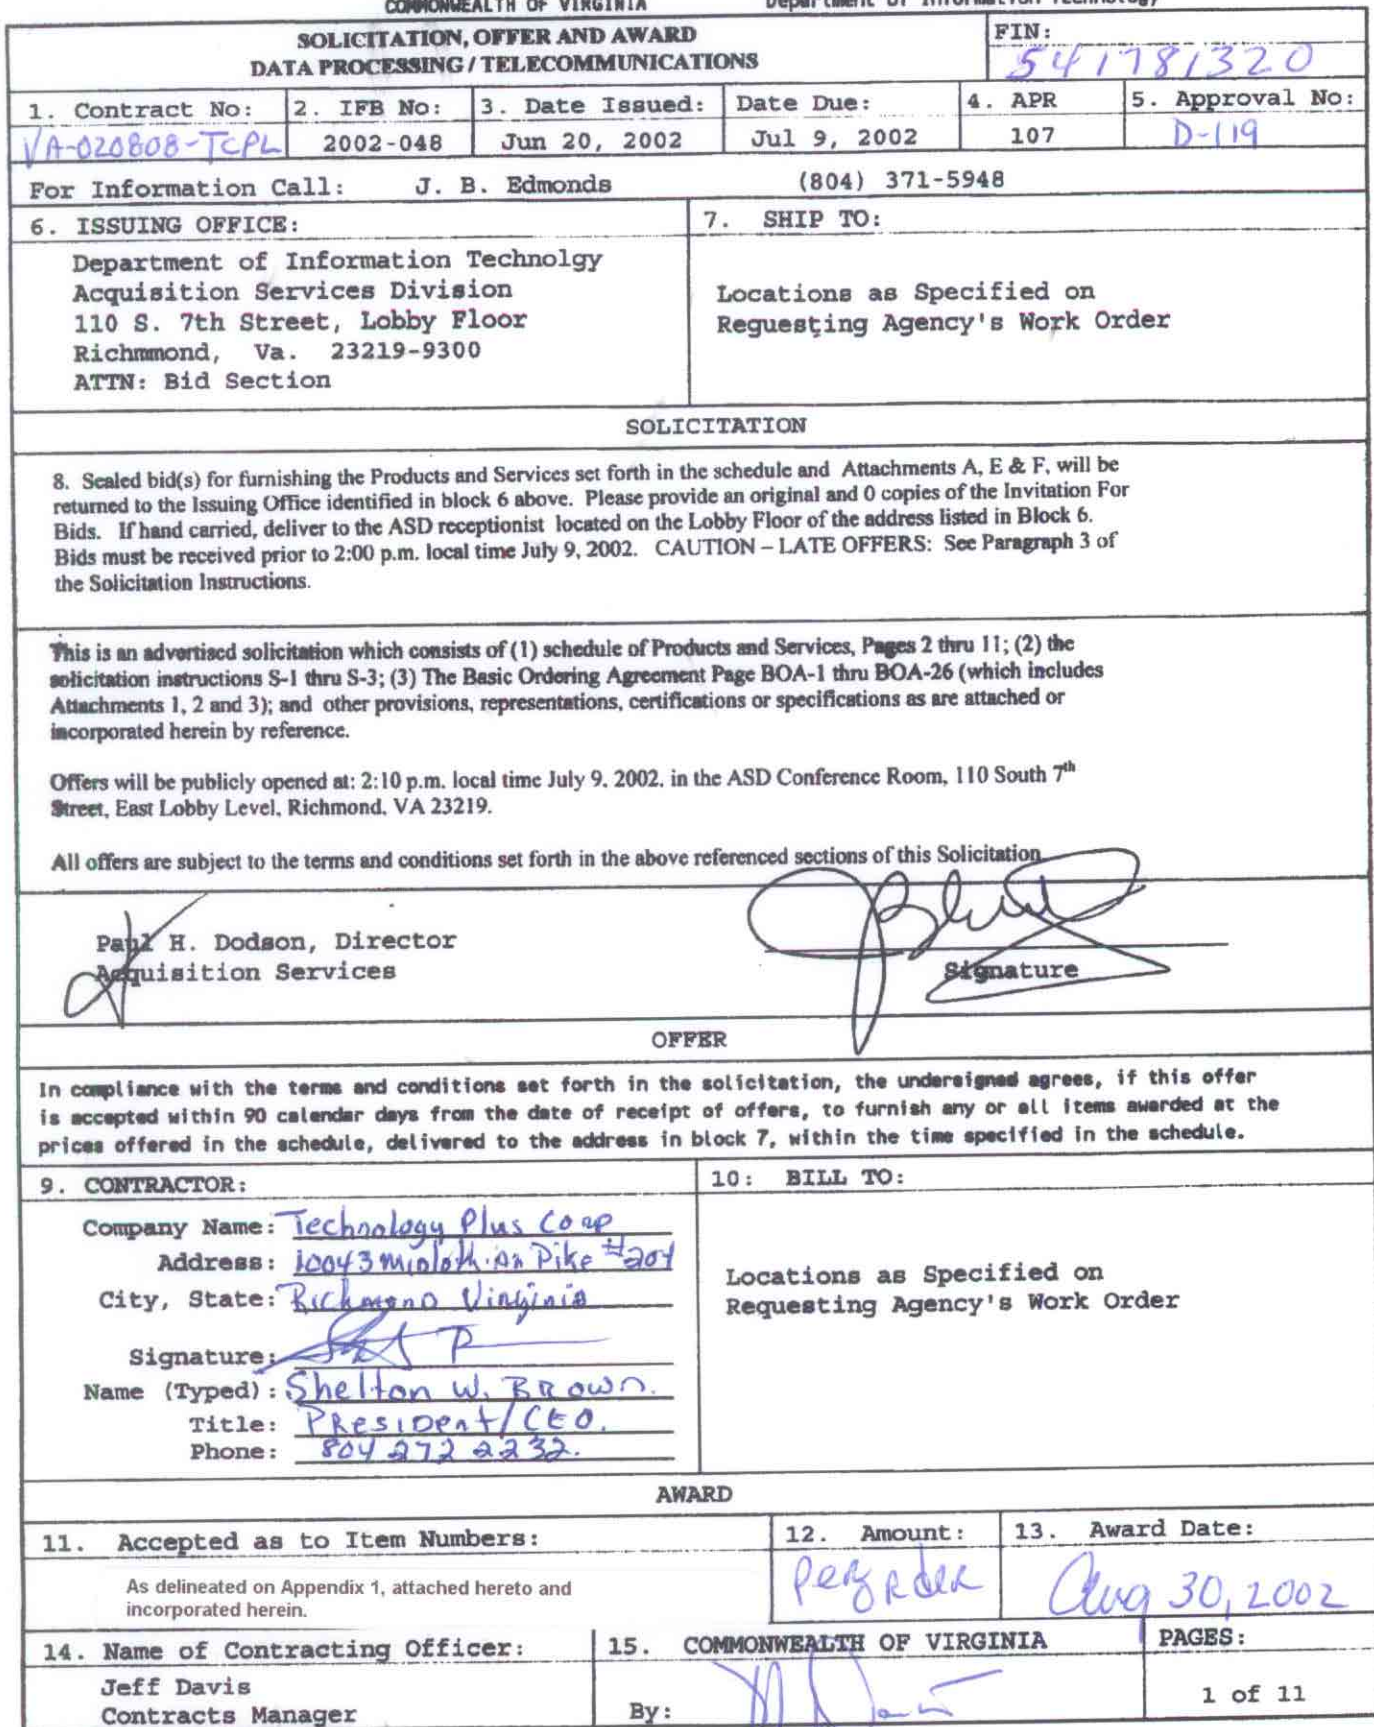 COMMONWEALTH OF VIRGINIA Department of Information Technology
SOLICITATION, OFFER AND AWARD
DATA PROCESSING / TELECOMMUNICATIONS
FIN:
541781320
1. Contract No: 2. IFB No: 3. Date Issued: Date Due: 4. APR 5. Approval No:
VA-020808-TCPL 2002-048 Jun 20, 2002 Jul 9, 2002 107 D-119
For Information Call: J. B. Edmonds (804) 371-5948
6. ISSUING OFFICE:
Department of Information Technolgy
Acquisition Services Division
110 S. 7th Street, Lobby Floor
Richmmond, Va. 23219-9300
ATTN: Bid Section
7. SHIP TO:
Locations as Specified on
Requesting Agency's Work Order
SOLICITATION
8. Sealed bid(s) for furnishing the Products and Services set forth in the schedule and Attachments A, E & F, will be
returned to the Issuing Office identified in block 6 above. Please provide an original and 0 copies of the Invitation For
Bids. If hand carried, deliver to the ASD receptionist located on the Lobby Floor of the address listed in Block 6.
Bids must be received prior to 2:00 p.m. local time July 9, 2002. CAUTION – LATE OFFERS: See Paragraph 3 of
the Solicitation Instructions.
This is an advertised solicitation which consists of (1) schedule of Products and Services, Pages 2 thru 11; (2) the
solicitation instructions S-1 thru S-3; (3) The Basic Ordering Agreement Page BOA-1 thru BOA-26 (which includes
Attachments 1, 2 and 3); and other provisions, representations, certifications or specifications as are attached or
incorporated herein by reference.
Offers will be publicly opened at: 2:10 p.m. local time July 9, 2002, in the ASD Conference Room, 110 South 7th
Street, East Lobby Level, Richmond, VA 23219.
All offers are subject to the terms and conditions set forth in the above referenced sections of this Solicitation
Paul H. Dodson, Director
Acquisition Services
Signature
OFFER
In compliance with the terms and conditions set forth in the solicitation, the undersigned agrees, if this offer
is accepted within 90 calendar days from the date of receipt of offers, to furnish any or all items awarded at the
prices offered in the schedule, delivered to the address in block 7, within the time specified in the schedule.
9. CONTRACTOR:
Company Name: Technology Plus Corp
Address: 10043 Midlothian Pike #204
City, State: Richmond Virginia
Signature:
Name (Typed): Shelton W. Brown.
Title: President/CEO.
Phone: 804 272 2232.
10: BILL TO:
Locations as Specified on
Requesting Agency's Work Order
AWARD
11. Accepted as to Item Numbers:
As delineated on Appendix 1, attached hereto and
incorporated herein.
12. Amount:
Per order
13. Award Date:
Aug 30, 2002
14. Name of Contracting Officer:
Jeff Davis
Contracts Manager
15. COMMONWEALTH OF VIRGINIA
By:
PAGES:
1 of 11